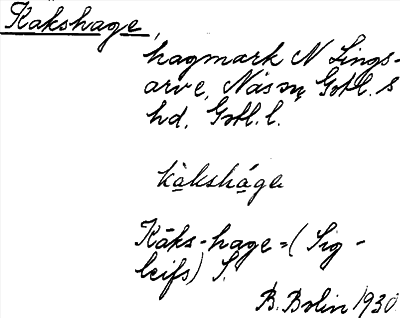 Kákshage,
hagmark N Lings-
arve, Näs sn, Gotl. s
hd, Gotl. l.
kàksháge
Káks-hage = (Sig-
leifs) S.
B. Bolin 1930